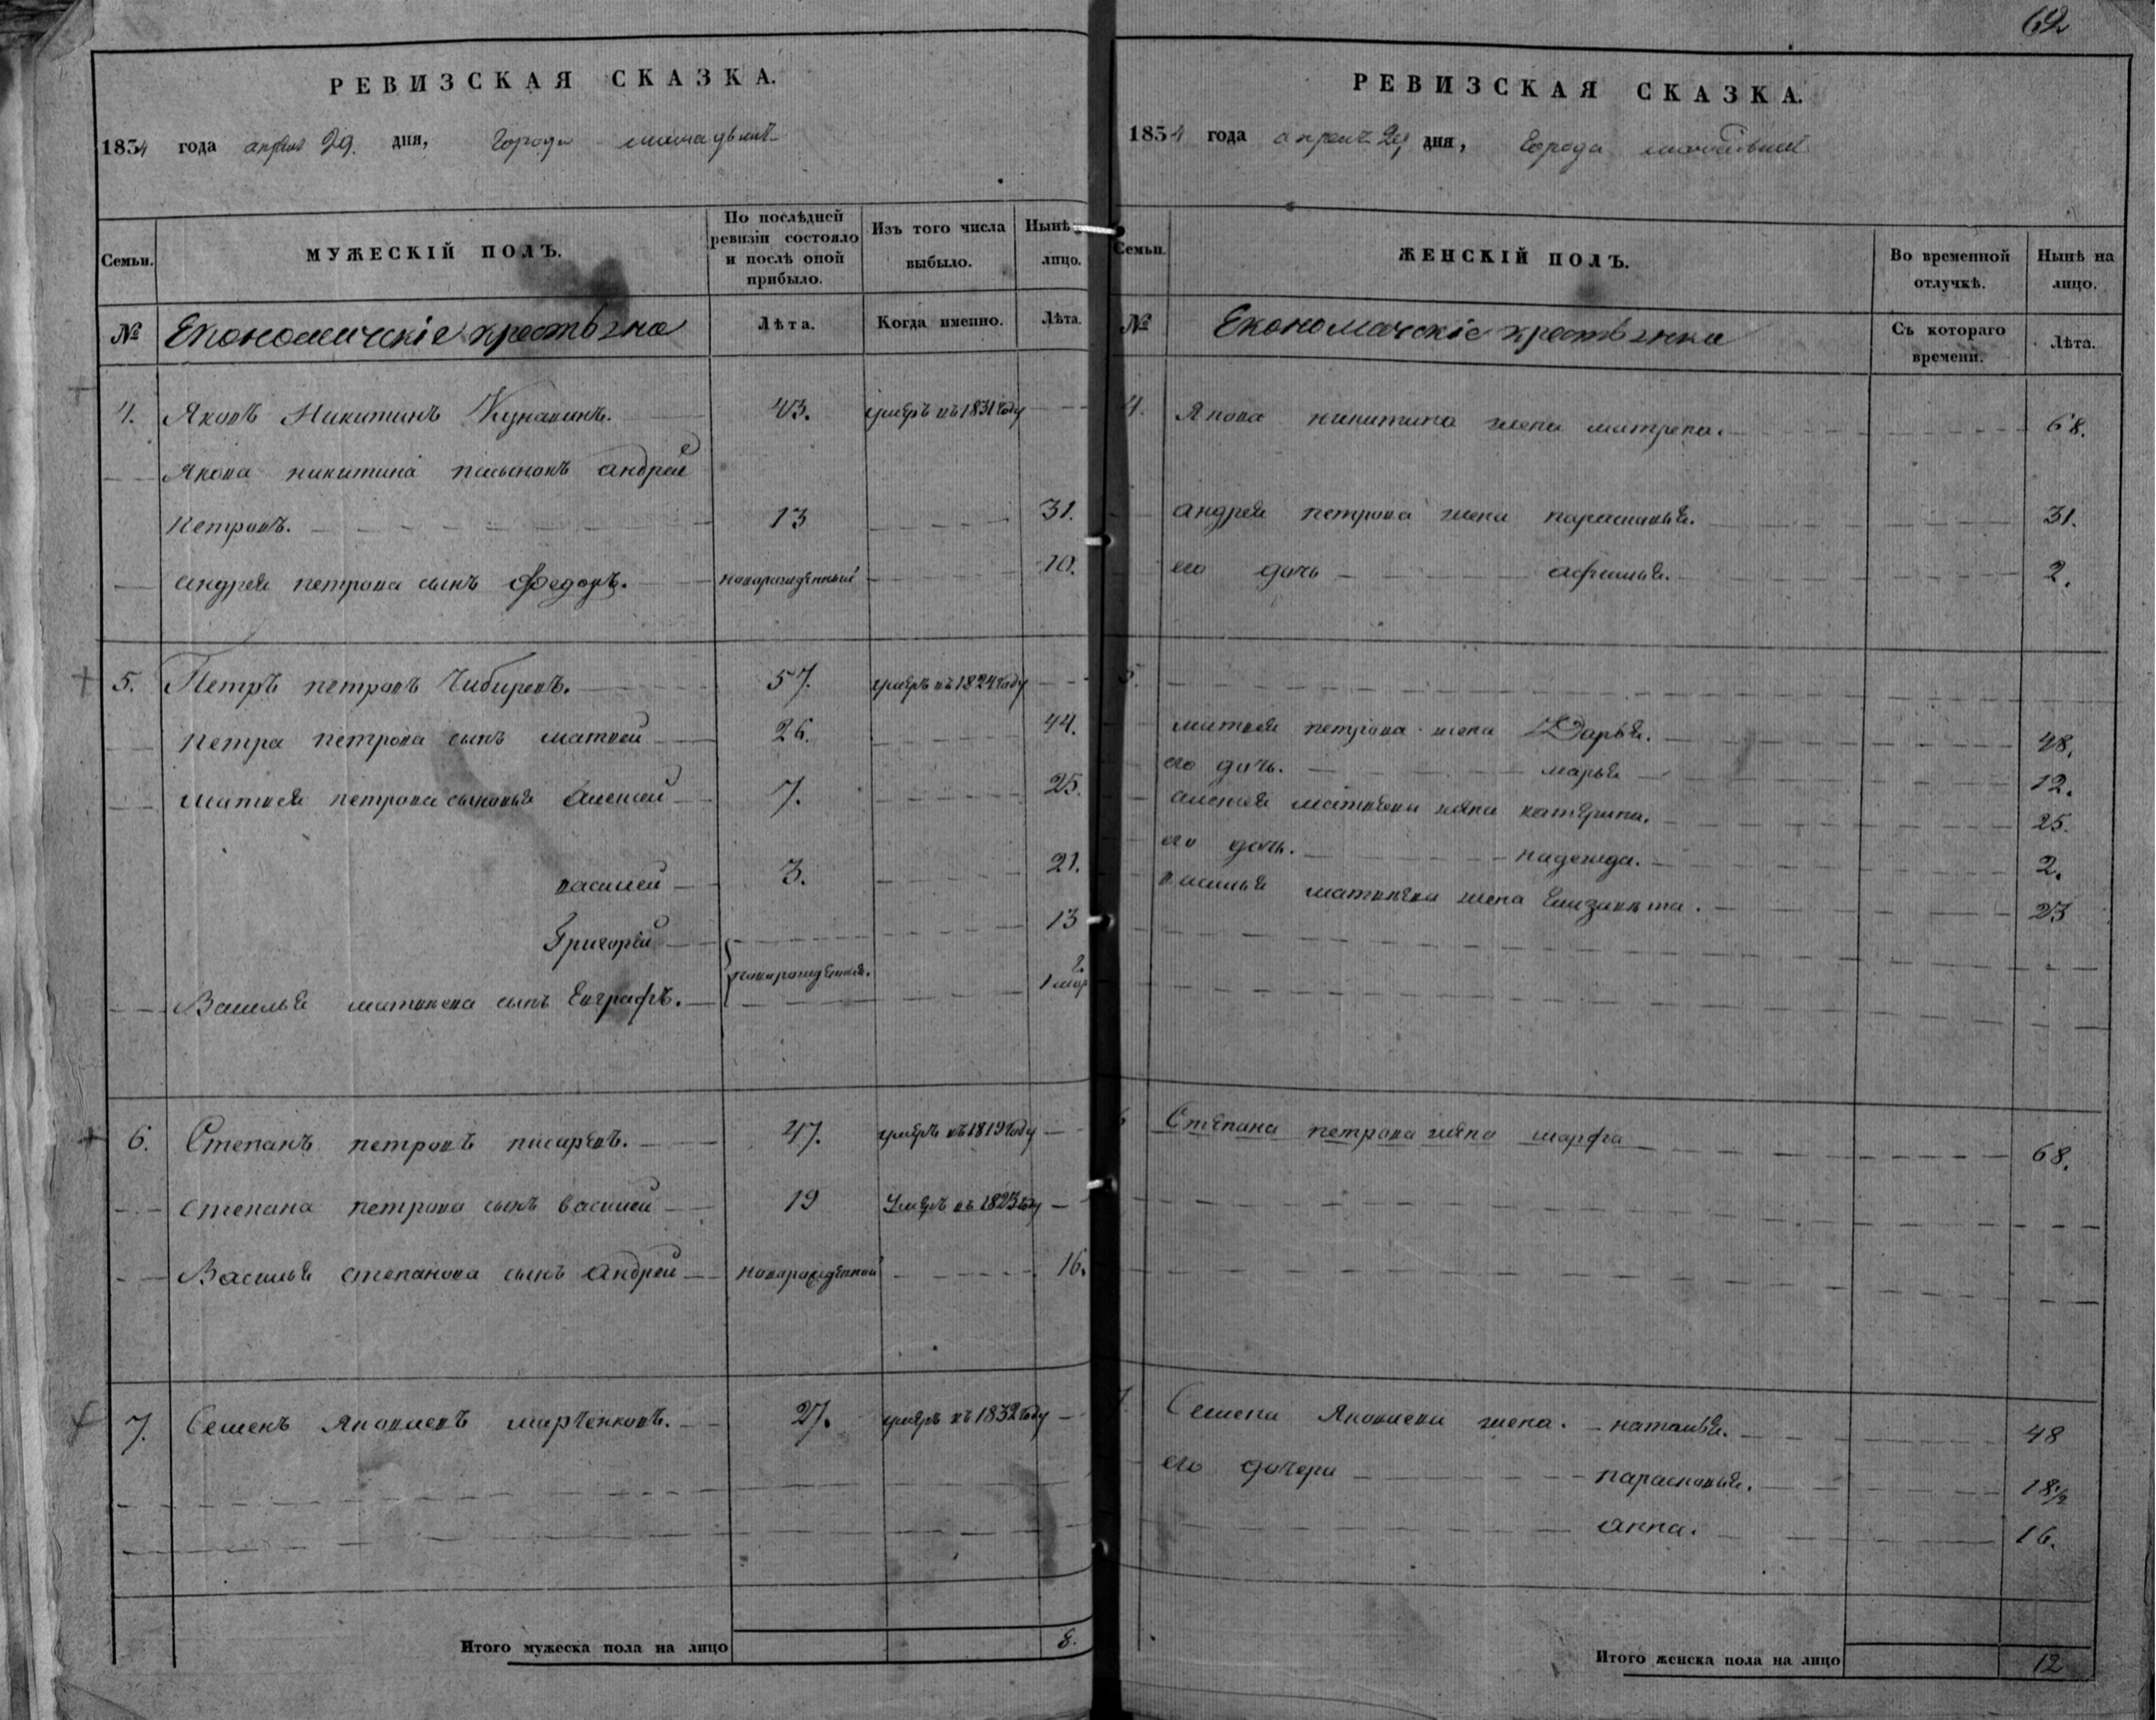 62
РЕВИЗСКАЯ СКАЗКА.
1834 года апреля 29 дня, Города
Семьи.
МУЖЕСКІЙ ПОЛЪ.
По послѣдней ревизіи состояло и послѣ оной прибыло.
Изъ того числа выбыло.
Нынѣ на лицо.
№ Економическіе крестьяне
Лѣта.
Когда именно.
Лѣта.
4. Яковъ Никитинъ 43. умеръ въ 1831 году
Якова никитина пасынокъ андрей
петровъ. 13 31.
андрея петрова сынъ Федоръ. новарожденный 10.
5. Петръ петровъ Чибиревъ. 57. умеръ въ 1824 году
петра петрова сынъ матвей 26. 44.
матвея петрова сыновья алексей 7. 25.
василей 3. 21.
Григорей 13
новарожденыя.
Василья матвеева сынъ Евграфъ.
6. Степанъ петровъ писаревъ. 47. умеръ въ 1819 году
степана петрова сынъ василей 19 Умеръ въ 1823 году
Василья степанова сынъ андрей новарожденной 16.
7. Семенъ Яковлевъ 27. умеръ въ 1832 году
Итого мужеска пола на лицо 8.
РЕВИЗСКАЯ СКАЗКА.
1834 года апреля 29 дня, Города
Семьи.
ЖЕНСКІЙ ПОЛЪ.
Во временной отлучкѣ.
Нынѣ на лицо.
№ Економическіе крестьянки
Съ котораго времени.
Лѣта.
4. Якова никитина жена матрена. 68.
андрея петрова жена парасковья. 31.
его дочь афимья. 2.
5.
матвея петрова жена Дарья. 48.
его дочь. марья 12.
алексея матвеева жена катерина. 25.
его дочь. надежда. 2.
василья матвеева жена Елизавета. 23
6 Степана петрова жена марфа 68.
7 Семена Яковлева жена. наталья. 48
его дочери парасковья. 18 1/2
анна. 16.
Итого женска пола на лицо 12